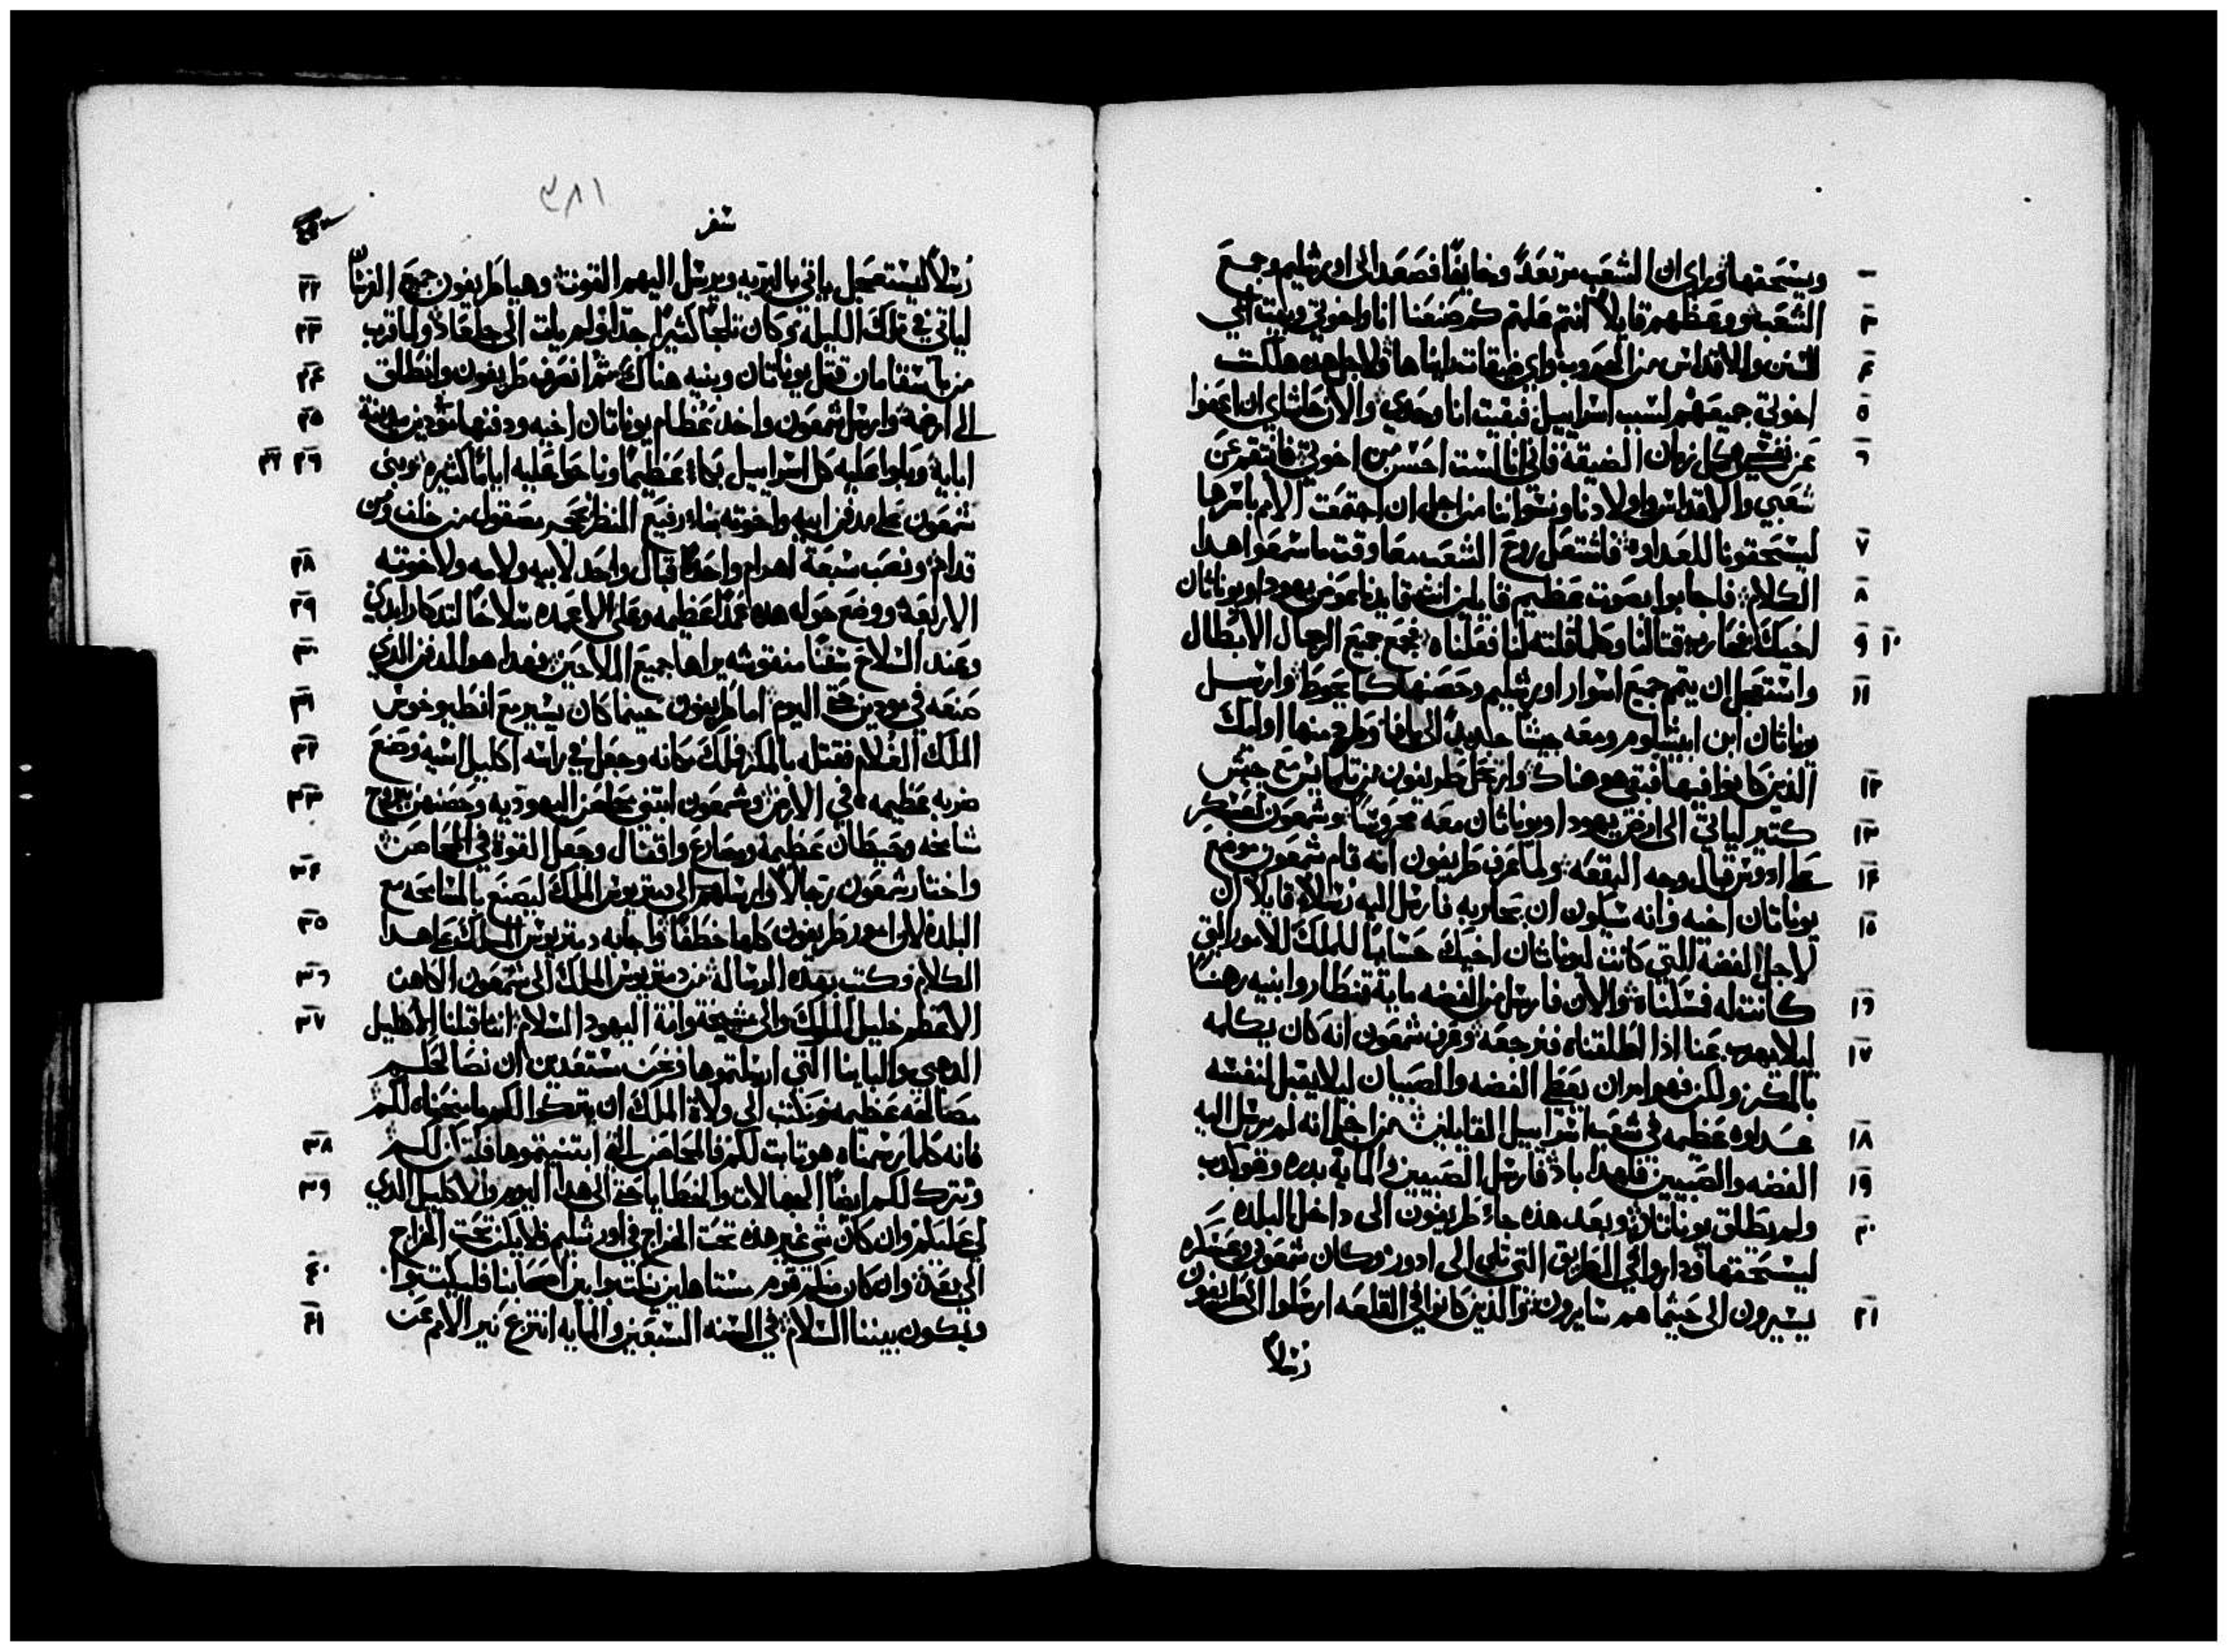 ويسحقها وراى ان الشعب مرتعدًا وخايفًا فصعد الى اورشليم وجمع
الشعب ووعظهم قايلًا انتم علمتم كم صنعنا انا واخوتي وبيت ابي
السنن والاقداس من الحروب واي ضيقات راينا ولاجل هده هلكت
اخوتي جميعهم لسبب اسراييل فبقيت انا وحدي والان حاشاي ان اعفوا
عن نفسي في كل زمان الضيقة فاني انا لست احسن من اخوتي فانتقم عن
شعبي والاقداس واولادنا ونسواننا من اجل ان اجتمعت الامم باسرها
ليسحقونا للعداوه فاشتعل روح الشعب معا وقت ما سمعوا هدا
الكلام فاجابوا بصوت عظيم قايلين انت قايدنا عوض يهودا ويوناتان
اخيك فحارب قتالنا وكلما قلته لنا فعلناه فجمع جميع الرجال الابطال
واستعجل ان يتم جميع اسوار اورشليم وحصنها كما يحوط وارسل
يوناتان ابن ابيشالوم ومعه جيشا جديدًا الى يافا وطرح منها اوليك
الذين كانوا فيها فبقي هو هناك وارتحل طريفون من تلمايس مع جيش
كتير لياتي الى ارض يهودا ويوناتان معه محروسًا وشمعون عسكر
على ادوس قبال وجه البقعه ولما عرف طريفون انه قام شمعون موضع
يوناتان اخيه وانه سيكون ان يحاربه فارسل اليه رسلًا قايلًا ان
لاجل الفضه التي كانت ليوناتان اخيك حسابها للملك للامور التي
كانت له فمسكناه والان فارسل من الفضه ماية قنطار وابنيه رهنًا
ليلا يهرب عنا اذا اطلقناه فنرجعه وعرف شمعون انه كان يكلمه
بالمكر ولكن فهو امر ان يعطى الفضه والصبيان ليلا يقبل لنفسه
عداوه عظيمه في شعب اسراييل القايلين من اجل انه لم يرسل اليه
الفضه والصبيين فلهدا باد فارسل الصبيين والماية بدره وهو كدب
ولم يطلق يوناتان وبعد هذه جاء طريفون الى داخل البلده
ليسحقها وداروا في الطريق التي تلي الى ادور وكان شمعون وعسكره
يسيرون الى حيثما هم سايرون والذين كانوا في القلعه ارسلوا الى طريفون
رسلًا
١٨٢
سفر
رسلًا ليستعجل ياتي بالبريه ويرسل اليهم القوت وهيا طريفون جميع الفرسان
لياتي في تلك الليلة وكان تلجًا كثيرًا جدًا ولم يات الى جلعاد ولما قرب
من باسقامان قتل يوناتان وبنيه هناك ثم انصرف طريفون وانطلق
الى ارضه وارسل شمعون واخد عظام يوناتان اخيه ودفنها بمودين مدينة
ابايه وبكوا عليه كل اسراييل بكاء عظيمًا وناحوا عليه ايامًا كثيره وبنى
شمعون على مدفن ابيه واخوته بناء رفيع المنظر بحجر مصقول من خلف ومن
قدام ونصب سبعة اهرام واحدًا قبال واحد لابيه ولامه ولاخوته
الاربعة ووضع حوله هده عمدًا عظيمه وعلى الاعمده سلاحًا لتدكار ابدي
وعند السلاح سفنًا منقوشه يراها جميع الملاحين فهدا هو المدفن الدي
صنعه في مودين حتى اليوم اما طريفون حينما كان يسير مع انطيوخوس
الملك الغلام فقتله بالمكر فملك مكانه وجعل في راسه اكليل اسيه وضع
ضربه عظيمه في الارض وشمعون ابتنى محاصن اليهوديه وحصنهن ببروج
شامخه وحيطان عظيمة ومصارع واقفال وجعل القوة في المحاصن
واختار شمعون رجالًا وارسلهم الى دمتريوس الملك ليصنع بالمسامحه مع
البلده لان امور طريفون كلها خطفًا واجابه دمتريوس الملك على هدا
الكلام وكتب بهده الرسالة من دمتريوس الملك الى شمعون الكاهن
الاعظم خليل الملوك والى مشيخة وامة اليهود السلام اننا قبلنا الاكليل
الدهبي والبايينا التي ارسلتموها ونحن مستعدين ان نصالحكم
مصالحه عظيمه ونكتب الى ولاة الملك ان يتركوا لكم ما منحناه لكم
فانه كلما رسمناه هو تابت لكم فالمحاصن التي ابتنيتموها فلتكن لكم
ونترك لكم ايضًا الجهالات والخطايا حتى الى هدا اليوم والاكليل الدي
لي عليكم وان كان شي غير هذه تحت الخراج في اورشليم فلا يكن تحت الخراج
الى بعد وان كان منكم قوم مستاهلين يكتبوا بين اصحابنا فليكتبوا
ويكون بيننا السلام في السنه السبعين والمايه انتزع نير الامم عن